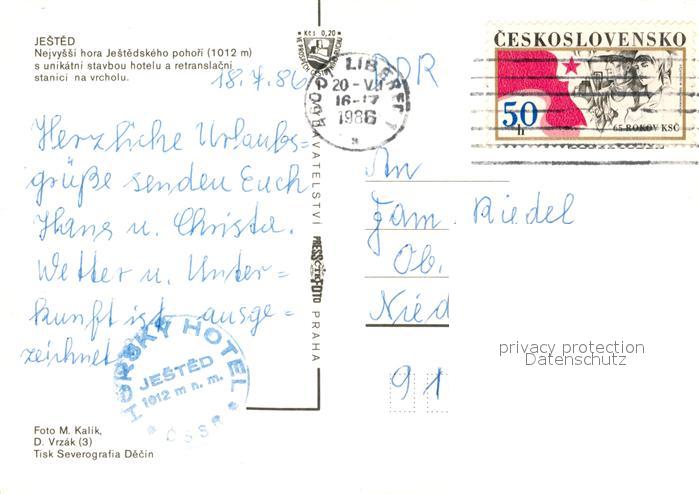 JEŠTĚD
Nejvyšší hora Ještědského pohoří (1012 m)
s unikátní stavbou hotelu a retranslační
stanicí na vrcholu.
18.7.86
Herzliche Urlaubs=
grüße senden Euch
Hans u. Christa.
Wetter u. Unter=
kunft ist ausge=
zeichnet
HORSKÝ HOTEL
JEŠTĚD
1012 m n. m.
* ČSSR *
Foto M. Kalík,
D. Vrzák (3)
Tisk Severografia Děčín
Kčs 0,20
VYDAVATELSTVÍ PRESSFOTO PRAHA
LIBEREC 1
20-VII
16-17
1986
ČESKOSLOVENSKO
50 h
65 ROKOV KSČ
DDR
An
Fam. Riedel
Ob.
Nied
91
privacy protection
Datenschutz